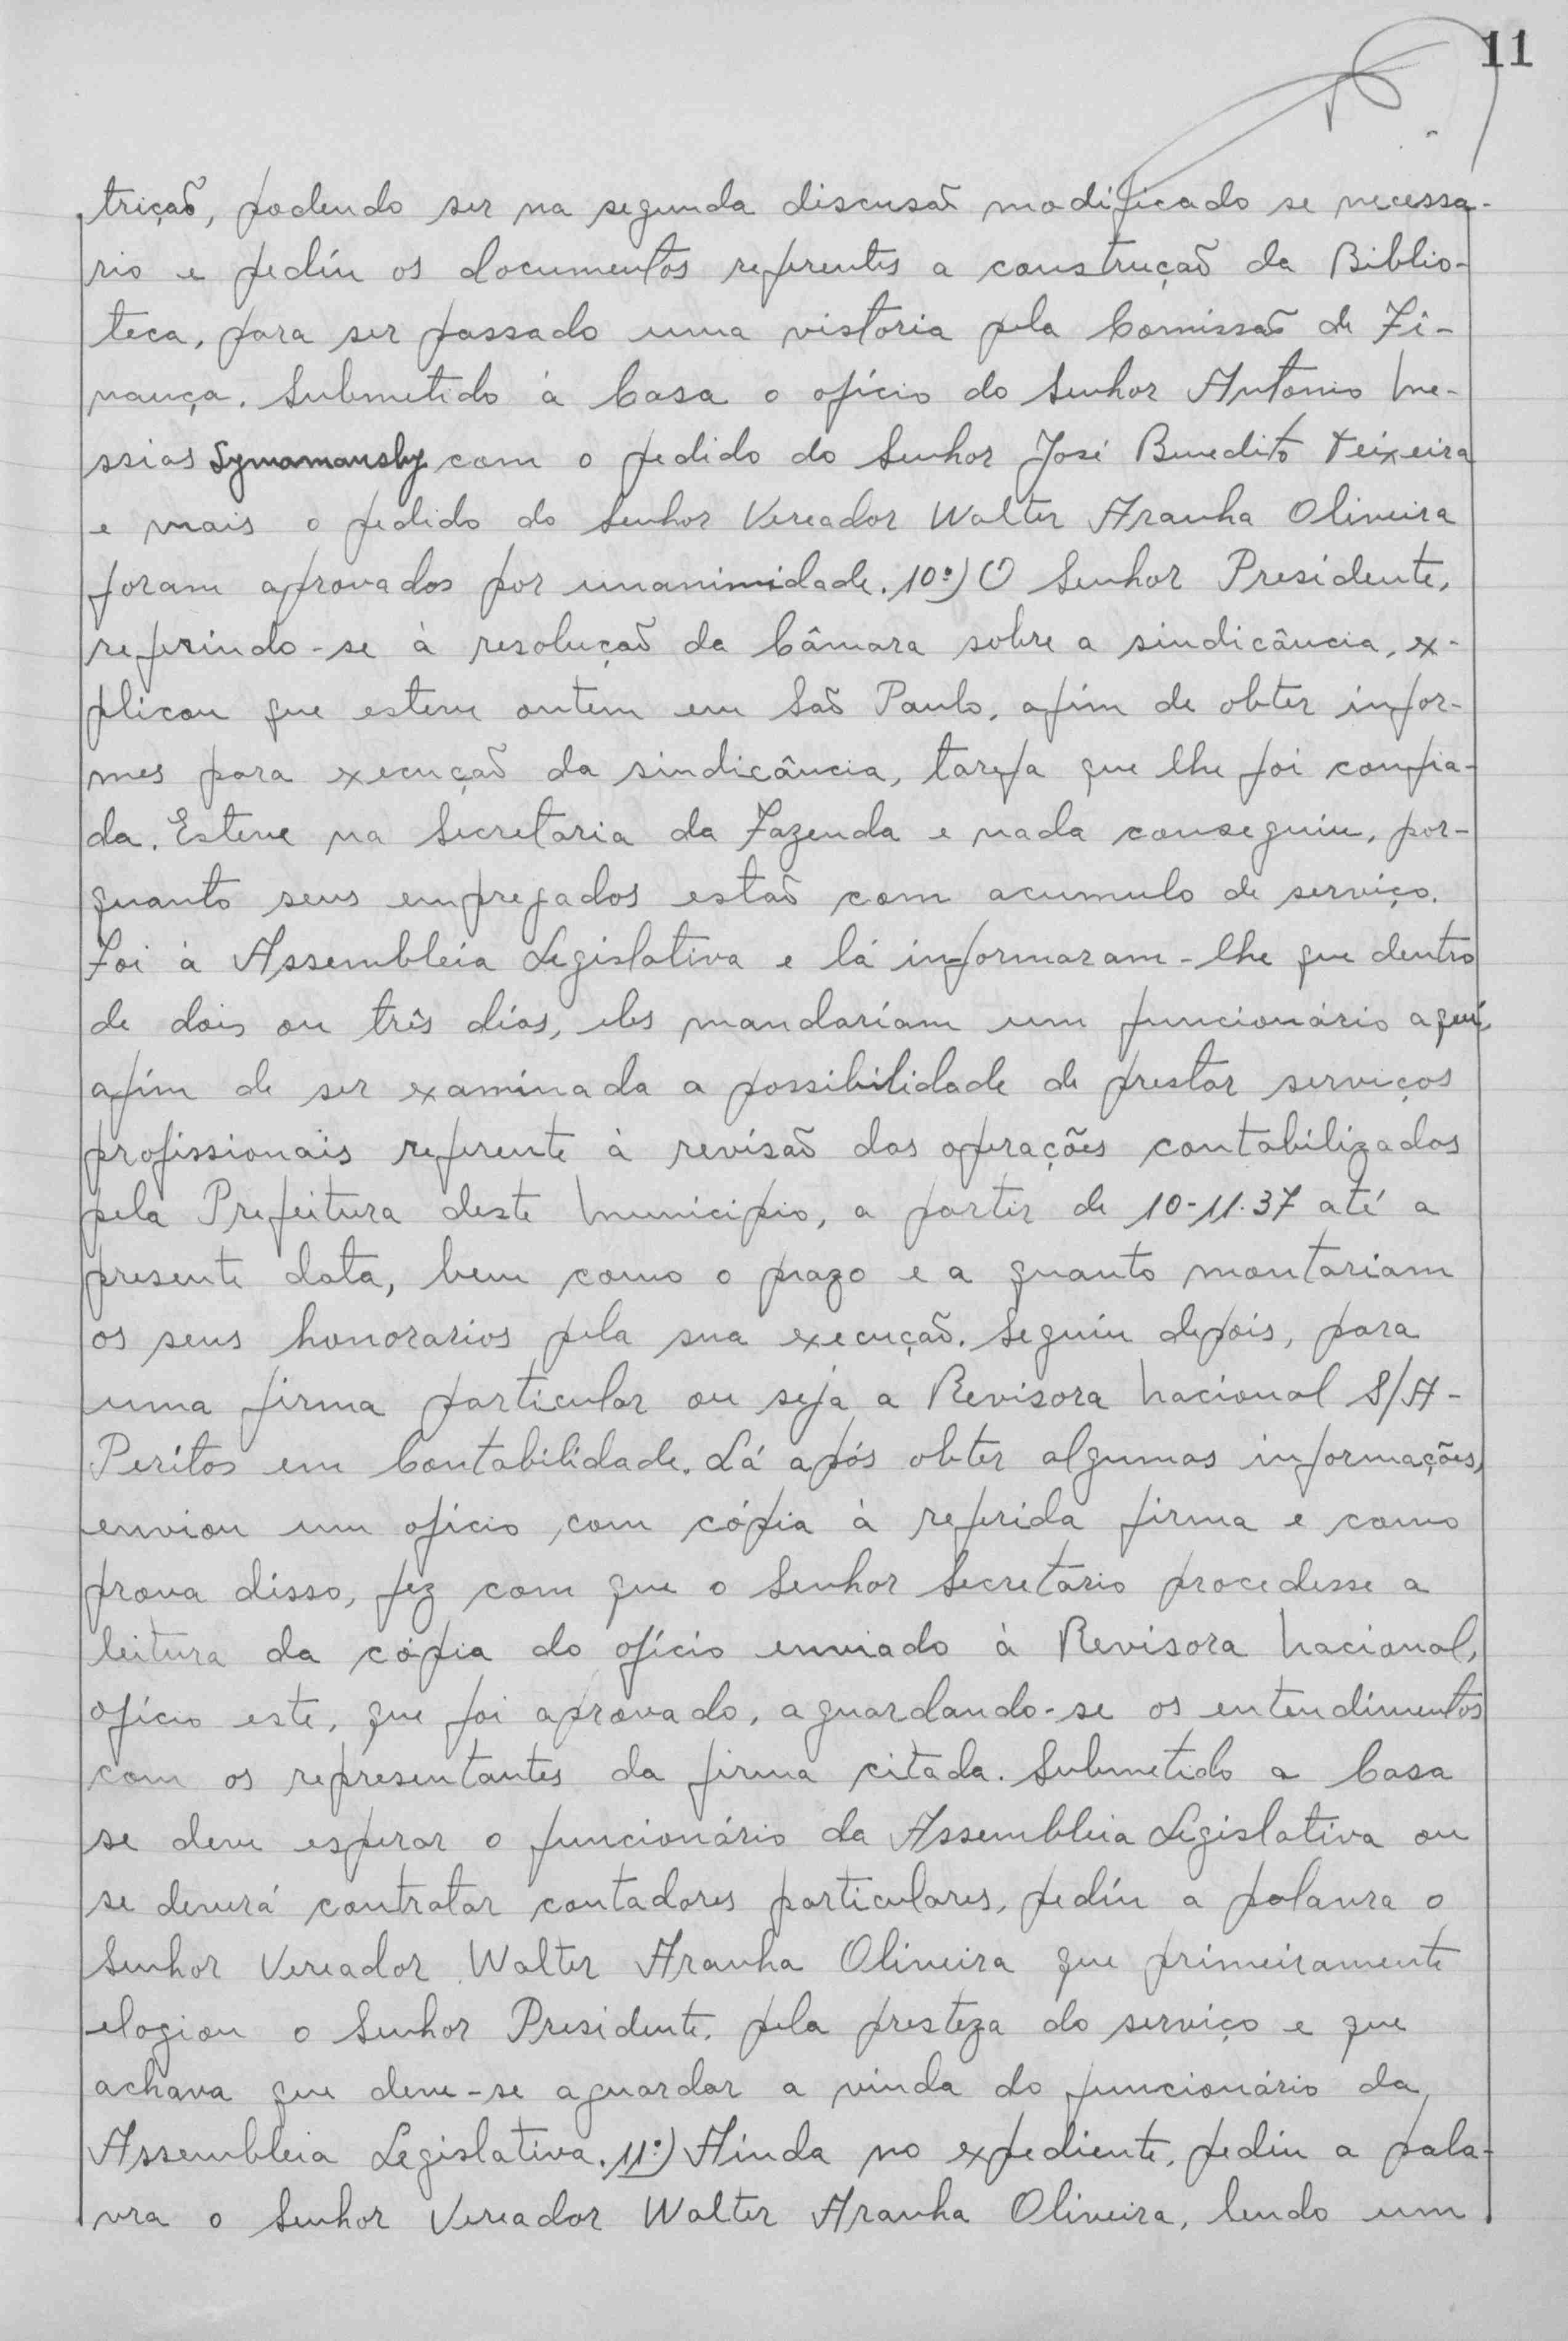 11
trição, podendo ser na segunda discusão modificado se necessa-
rio e pedíu os documentos referentes a construção da Biblio-
teca, para ser passado uma vistoria pela Comissão de Fi-
nança. Submetido à Casa o ofício do Senhor Antonio Me-
ssias Symamansky com o pedido do Senhor José Benedito Teixeira
e mais o pedido do Senhor Vereador Walter Aranha Oliveira
foram aprovados por unanimidade. 10º) O Senhor Presidente,
referindo-se à resolução da Câmara sobre a sindicância, ex-
plicou que esteve ontem em São Paulo, afim de obter infor-
mes para execução da sindicância, tarefa que lhe foi confia-
da. Esteve na Secretaria da Fazenda e nada conseguiu, por-
quanto seus empregados estão com acumulo de serviço.
Foi à Assembléia Legislativa e lá informaram-lhe que dentro
de dois ou três días, eles mandaríam um funcionário aquí,
afim de ser examinada a possibilidade de prestar serviços
profissionais referente à revisão das operações contabilizadas
pela Prefeitura deste Municipio, a partir de 10-11-37 até a
presente data, bem como o prazo e a quanto montariam
os seus honorarios pela sua execução. Seguiu depois, para
uma firma particular ou seja a Revisora Nacional S/A-
Perítos em Contabilidade. Lá após obter algumas informações,
enviou um ofício com cópia à referida firma e como
prova disso, fez com que o Senhor Secretário procedesse a
leitura da cópia do ofício enviado à Revisora Nacional,
ofício este, que foi aprovado, aguardando-se os entendimentos
com os representantes da firma citada. Submetido a Casa
se deve esperar o funcionário da Assembleia Legislativa ou
se deverá contratar contadores particulares, pedíu a palavra o
Senhor Vereador Walter Aranha Oliveira que primeiramente
elogiou o Senhor Presidente, pela presteza do serviço e que
achava que deve-se aguardar a vinda do funcionário da
Assembleia Legislativa. 11º) Ainda no expediente, pediu a pala-
vra o Senhor Vereador Walter Aranha Oliveira, lendo um